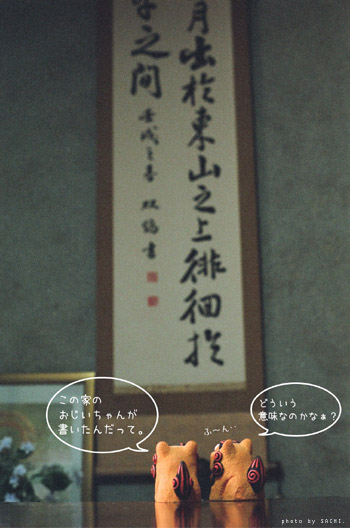 月出於東山之上徘徊於
牛之間
壬戌之春 双鶴書
この家の
おじいちゃんが
書いたんだって。
ふ～ん‥
どういう
意味なのかなぁ？
photo by SACHI.